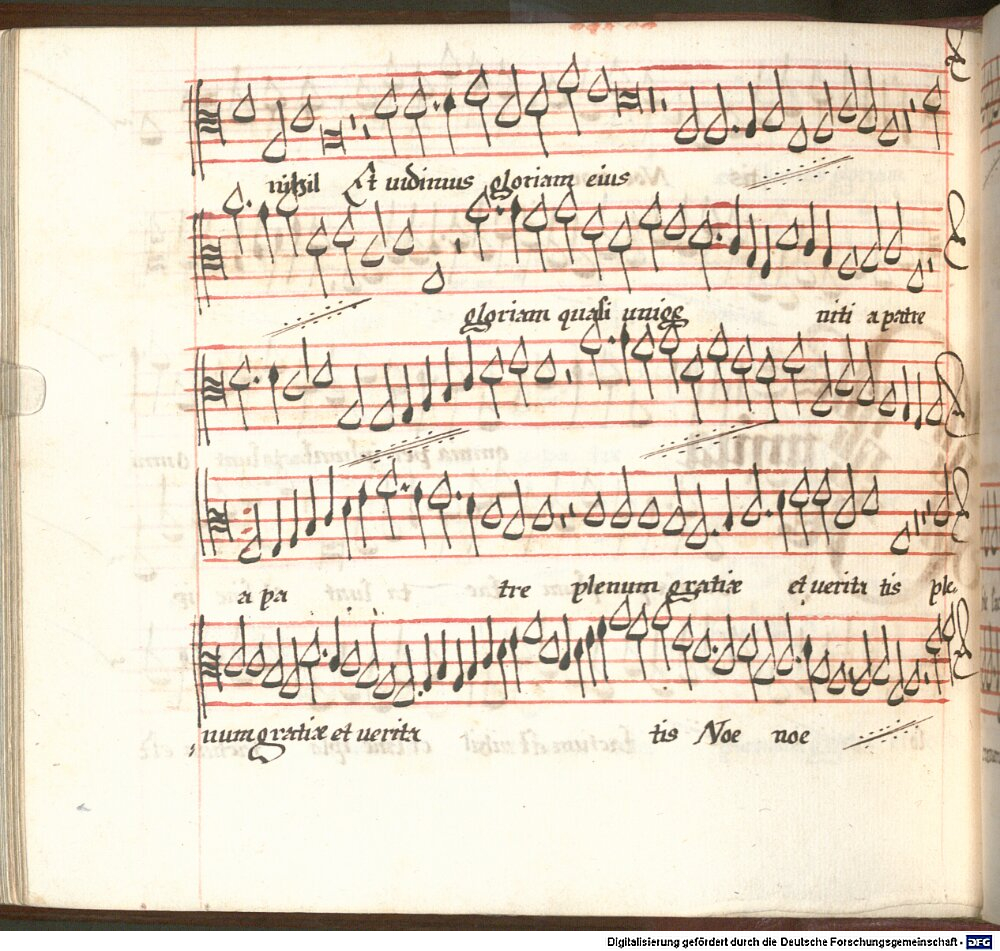 nihil Et vidimus gloriam eius
gloriam quasi unige niti a patre
a pa tre plenum gratiæ et verita tis ple,
num gratiæ et verita tis Noe noe
Digitalisierung gefördert durch die Deutsche Forschungsgemeinschaft - DFG